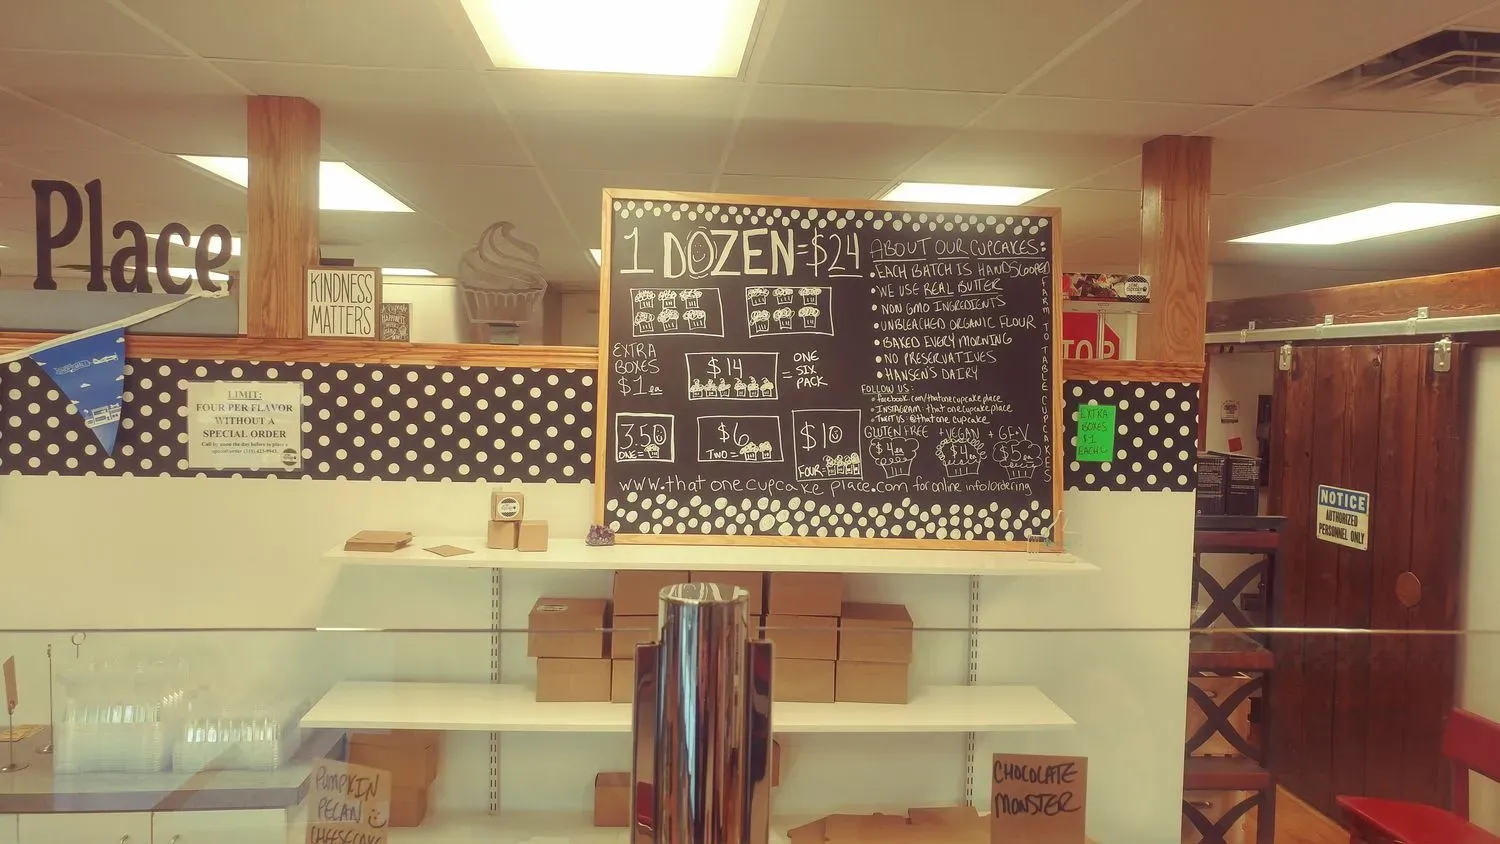 Place
KINDNESS
MATTERS
LIMIT:
FOUR PER FLAVOR
WITHOUT A
SPECIAL ORDER
1 DOZEN = $24
EXTRA
BOXES
$1 ea
$14
= ONE
SIX
PACK
3.50
ONE =
$6
TWO =
$10
FOUR =
ABOUT OUR CUPCAKES:
• EACH BATCH IS HANDSCOOPED
• WE USE REAL BUTTER
• NON GMO INGREDIENTS
• UNBLEACHED ORGANIC FLOUR
• BAKED EVERY MORNING
• NO PRESERVATIVES
• HANSEN'S DAIRY
FARM TO TABLE CUPCAKES
FOLLOW US:
• facebook.com/thatonecupcakeplace
• INSTAGRAM: thatonecupcakeplace
• @thatonecupcake
GLUTEN FREE + VEGAN + GF+V
$4 ea
$4 ea
$5 ea
www.thatonecupcakeplace.com for online info/ordering
TOP
EXTRA
BOXES
$1
EACH
NOTICE
AUTHORIZED
PERSONNEL ONLY
PUMPKIN
PECAN
CHEESECAKE
CHOCOLATE
MONSTER